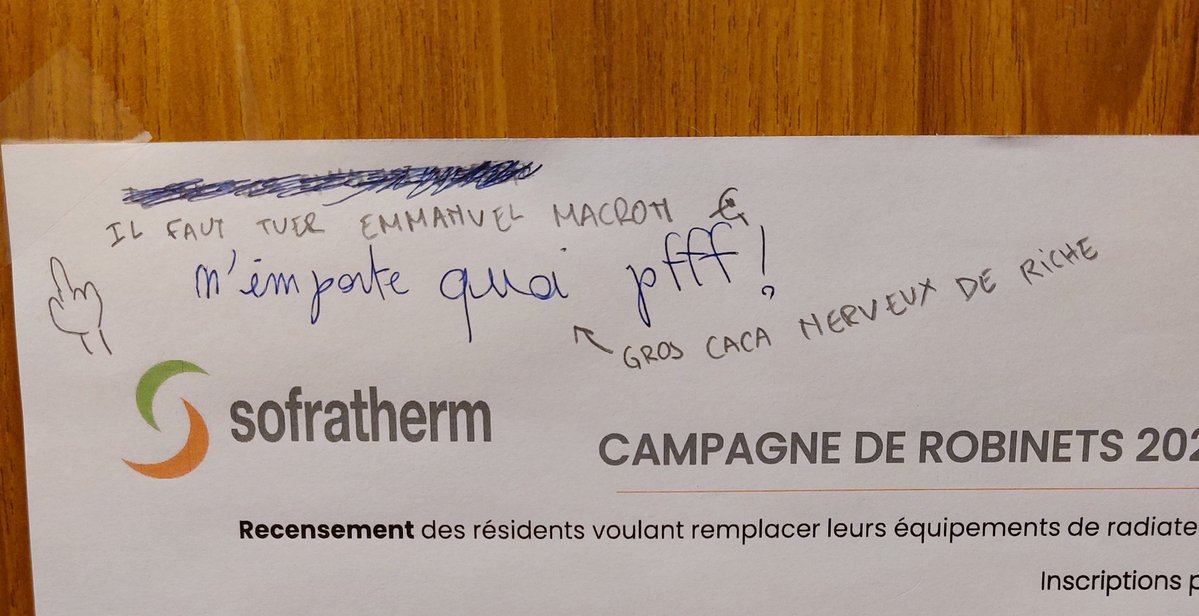 IL FAUT TUER EMMANUEL MACRON
n'importe quoi pfff!
GROS CACA NERVEUX DE RICHE
sofratherm
CAMPAGNE DE ROBINETS 202
Recensement des résidents voulant remplacer leurs équipements de radiate
Inscriptions p